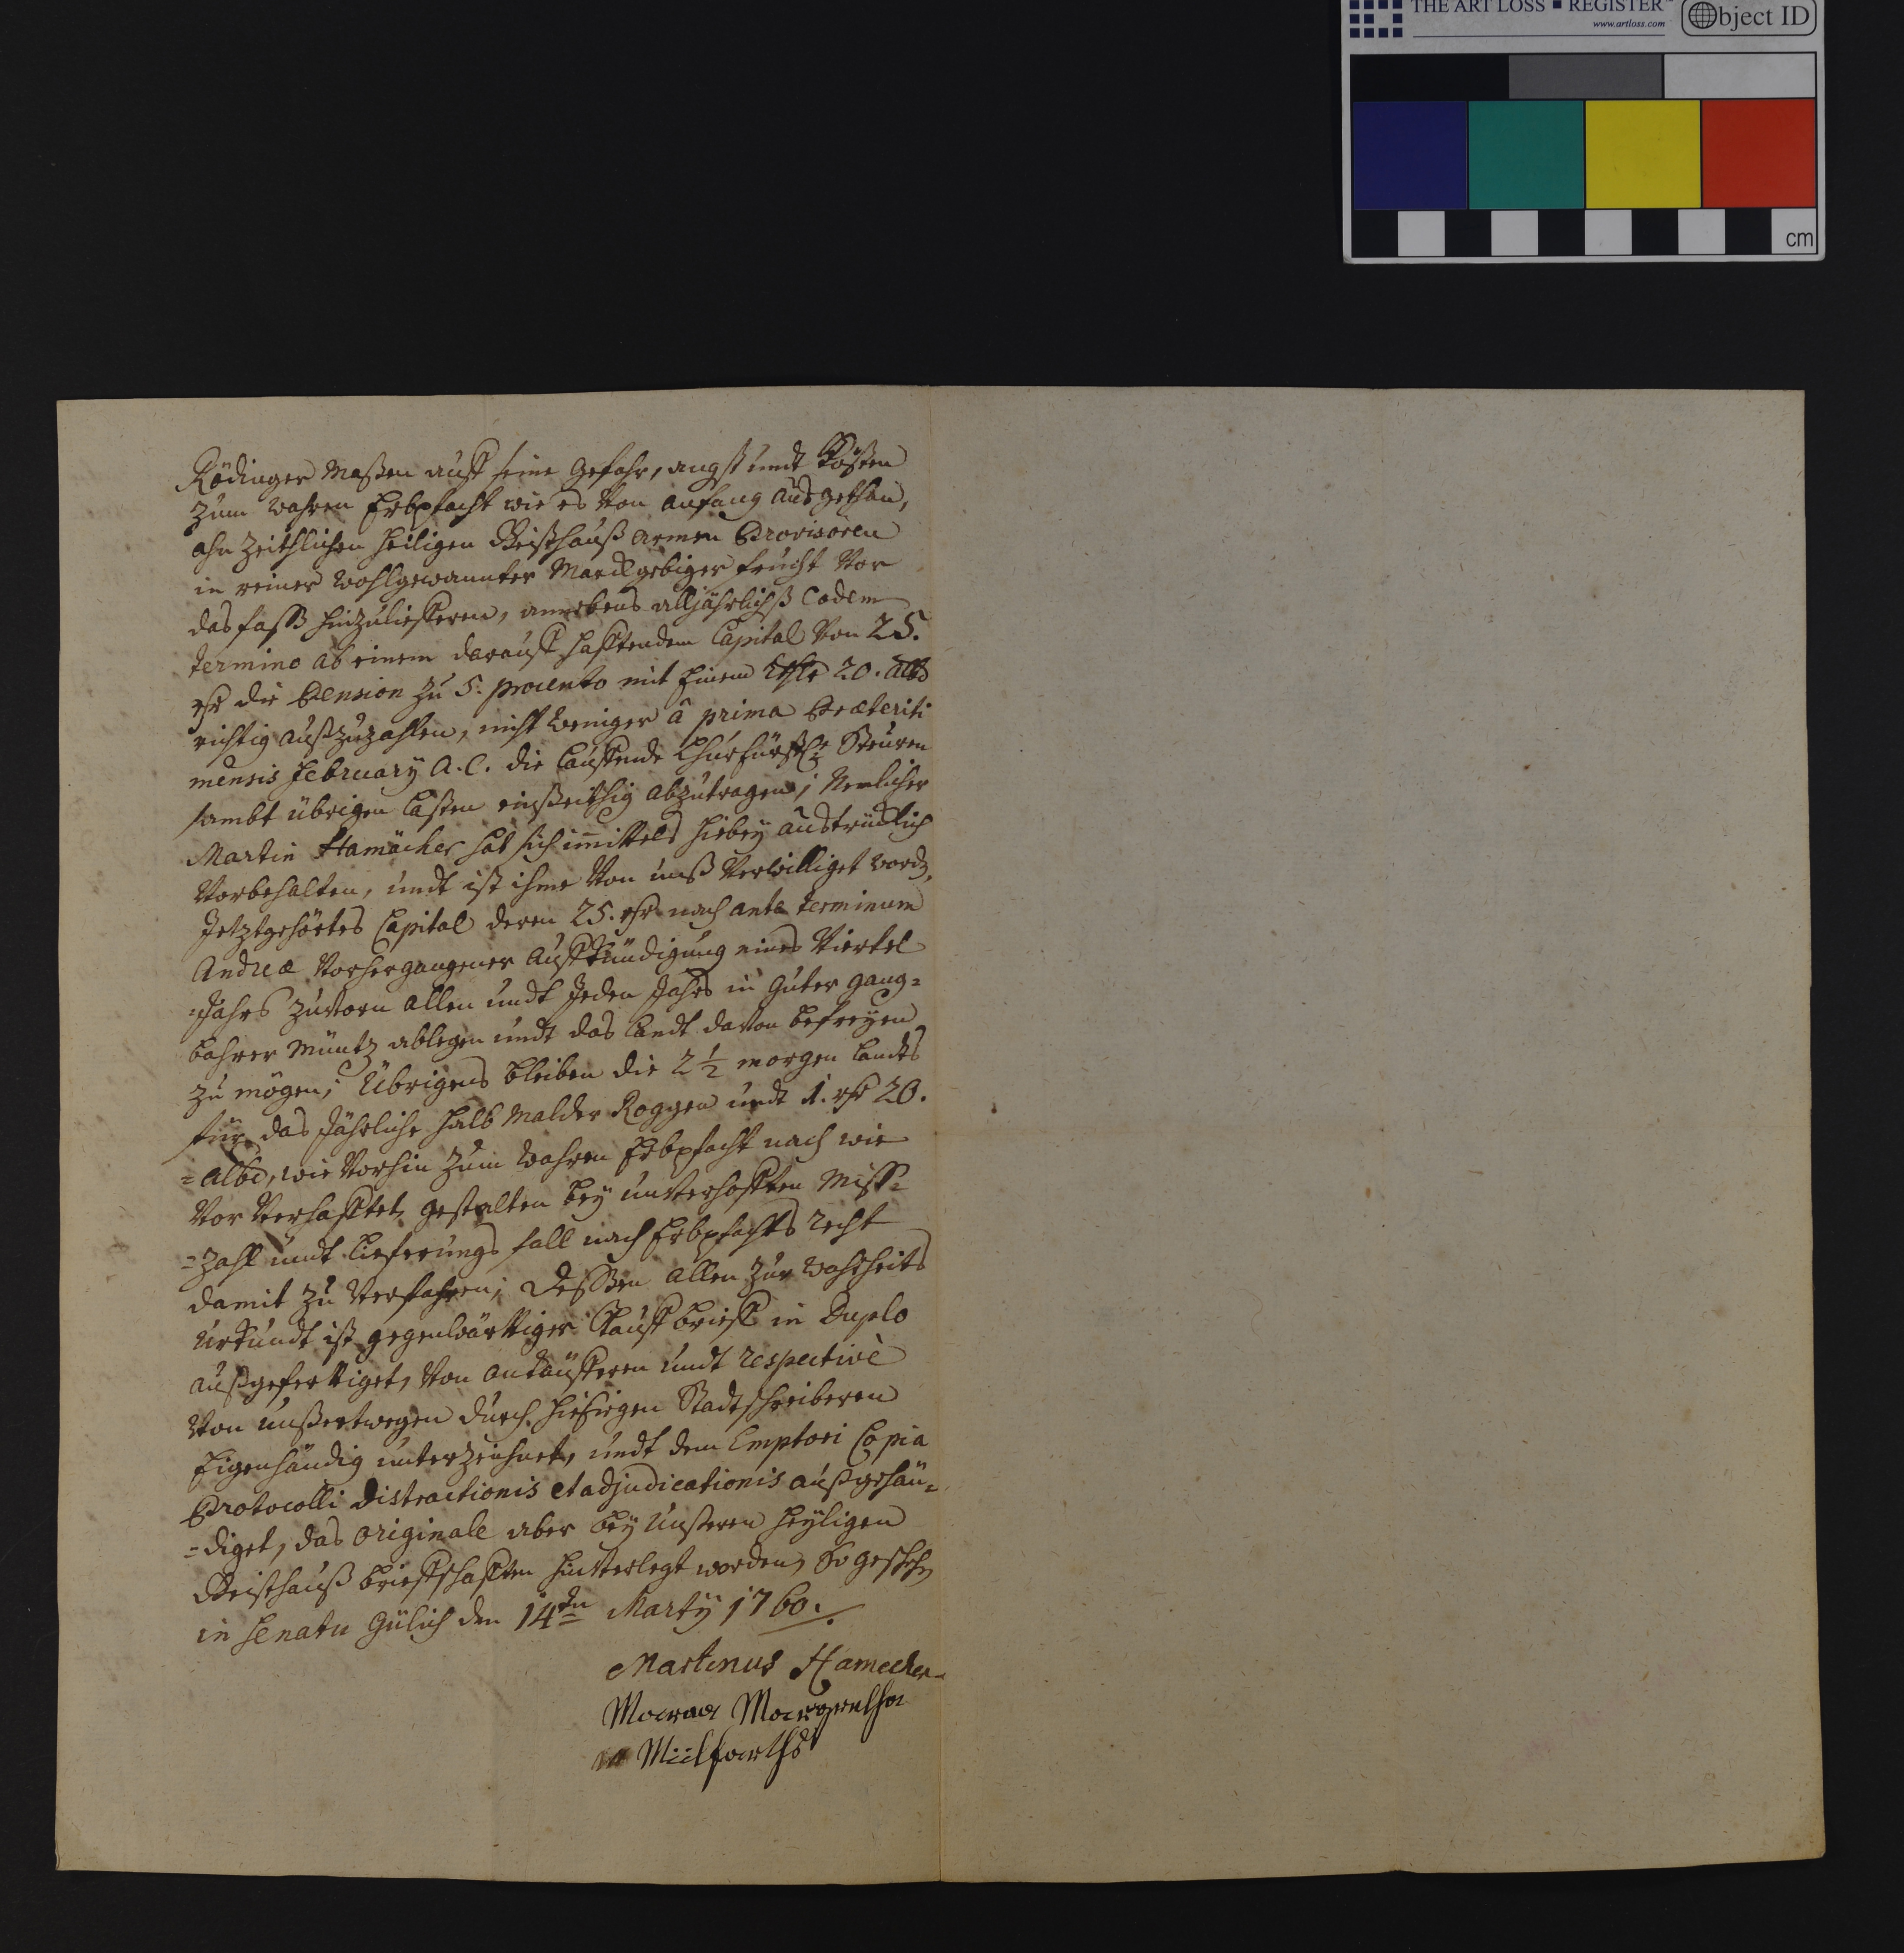 THE ART LOSS ▪ REGISTER™
www.artloss.com
Object ID
cm
Rödinger Maßen auff seine gefahr, angst undt Kösten
zum wahren Erbpfacht wie es von anfang ausgethan,
ahn zeithlichen heiligen Geisthauß armen Provisoren
in reiner wohlgewannter Marckgebiger frucht vor
das fass hinzulieferen, annebens alljährlichß Eodem
termino ab einem darauff hafftendem Capital von 25.
rhr die Pension zu 5. procento mit Einem rthlr 20. albs
richtig außzuzahlen, nicht weniger â prima Præteriti
mensis February A. C. die lauffende Churfürstl: Steuren
sambt übrigen lasten einßeithig abzutragen; Nemlicher
Martin Hamächer hat sich immittels hiebey austrücklich
vorbehalten, undt ist ihme von unß verwilliget word,
Jetztgehörtes Capital deren 25. rhr nach ante terminum
Andreæ vorhergangener auffkündigung eines viertel
Jahrs zuvorn allen undt Jeden Jahrs in guter gang=
bahrer Müntz ablegen undt das landt davon befreyen
zu mögen; Übrigens bleiben die 2 1/2 morgen landts
für das Jährliche halb Malder Roggen undt 1. rhr 20.
=albs, wie vorhin zum wahren Erbpfacht nach wie
vor verhafftet, gestalten bey unverhofften Miss=
=zahl undt lieferungs fall nach Erbpfachts recht
damit zu verfahren; Dessen allen zur wahrheits
Urkundt ist gegenwärttiger Kauffbrieff in Duplo
außgeferttiget, von ankäufferen undt respectivè
von unßertwegen durch hießigen Stadtschreiberen
Eigenhändig unterzeichnet, undt dem Emptori Copia
Protocolli distractionis et adjudicationis außgehän=
=diget, das originale aber bey unßeren heyligen
Geisthauß brieffschafften hinterlegt worden, So geschehen
in Senatu Gülich den 14ten Marty 1760.
Martinus Hamecher